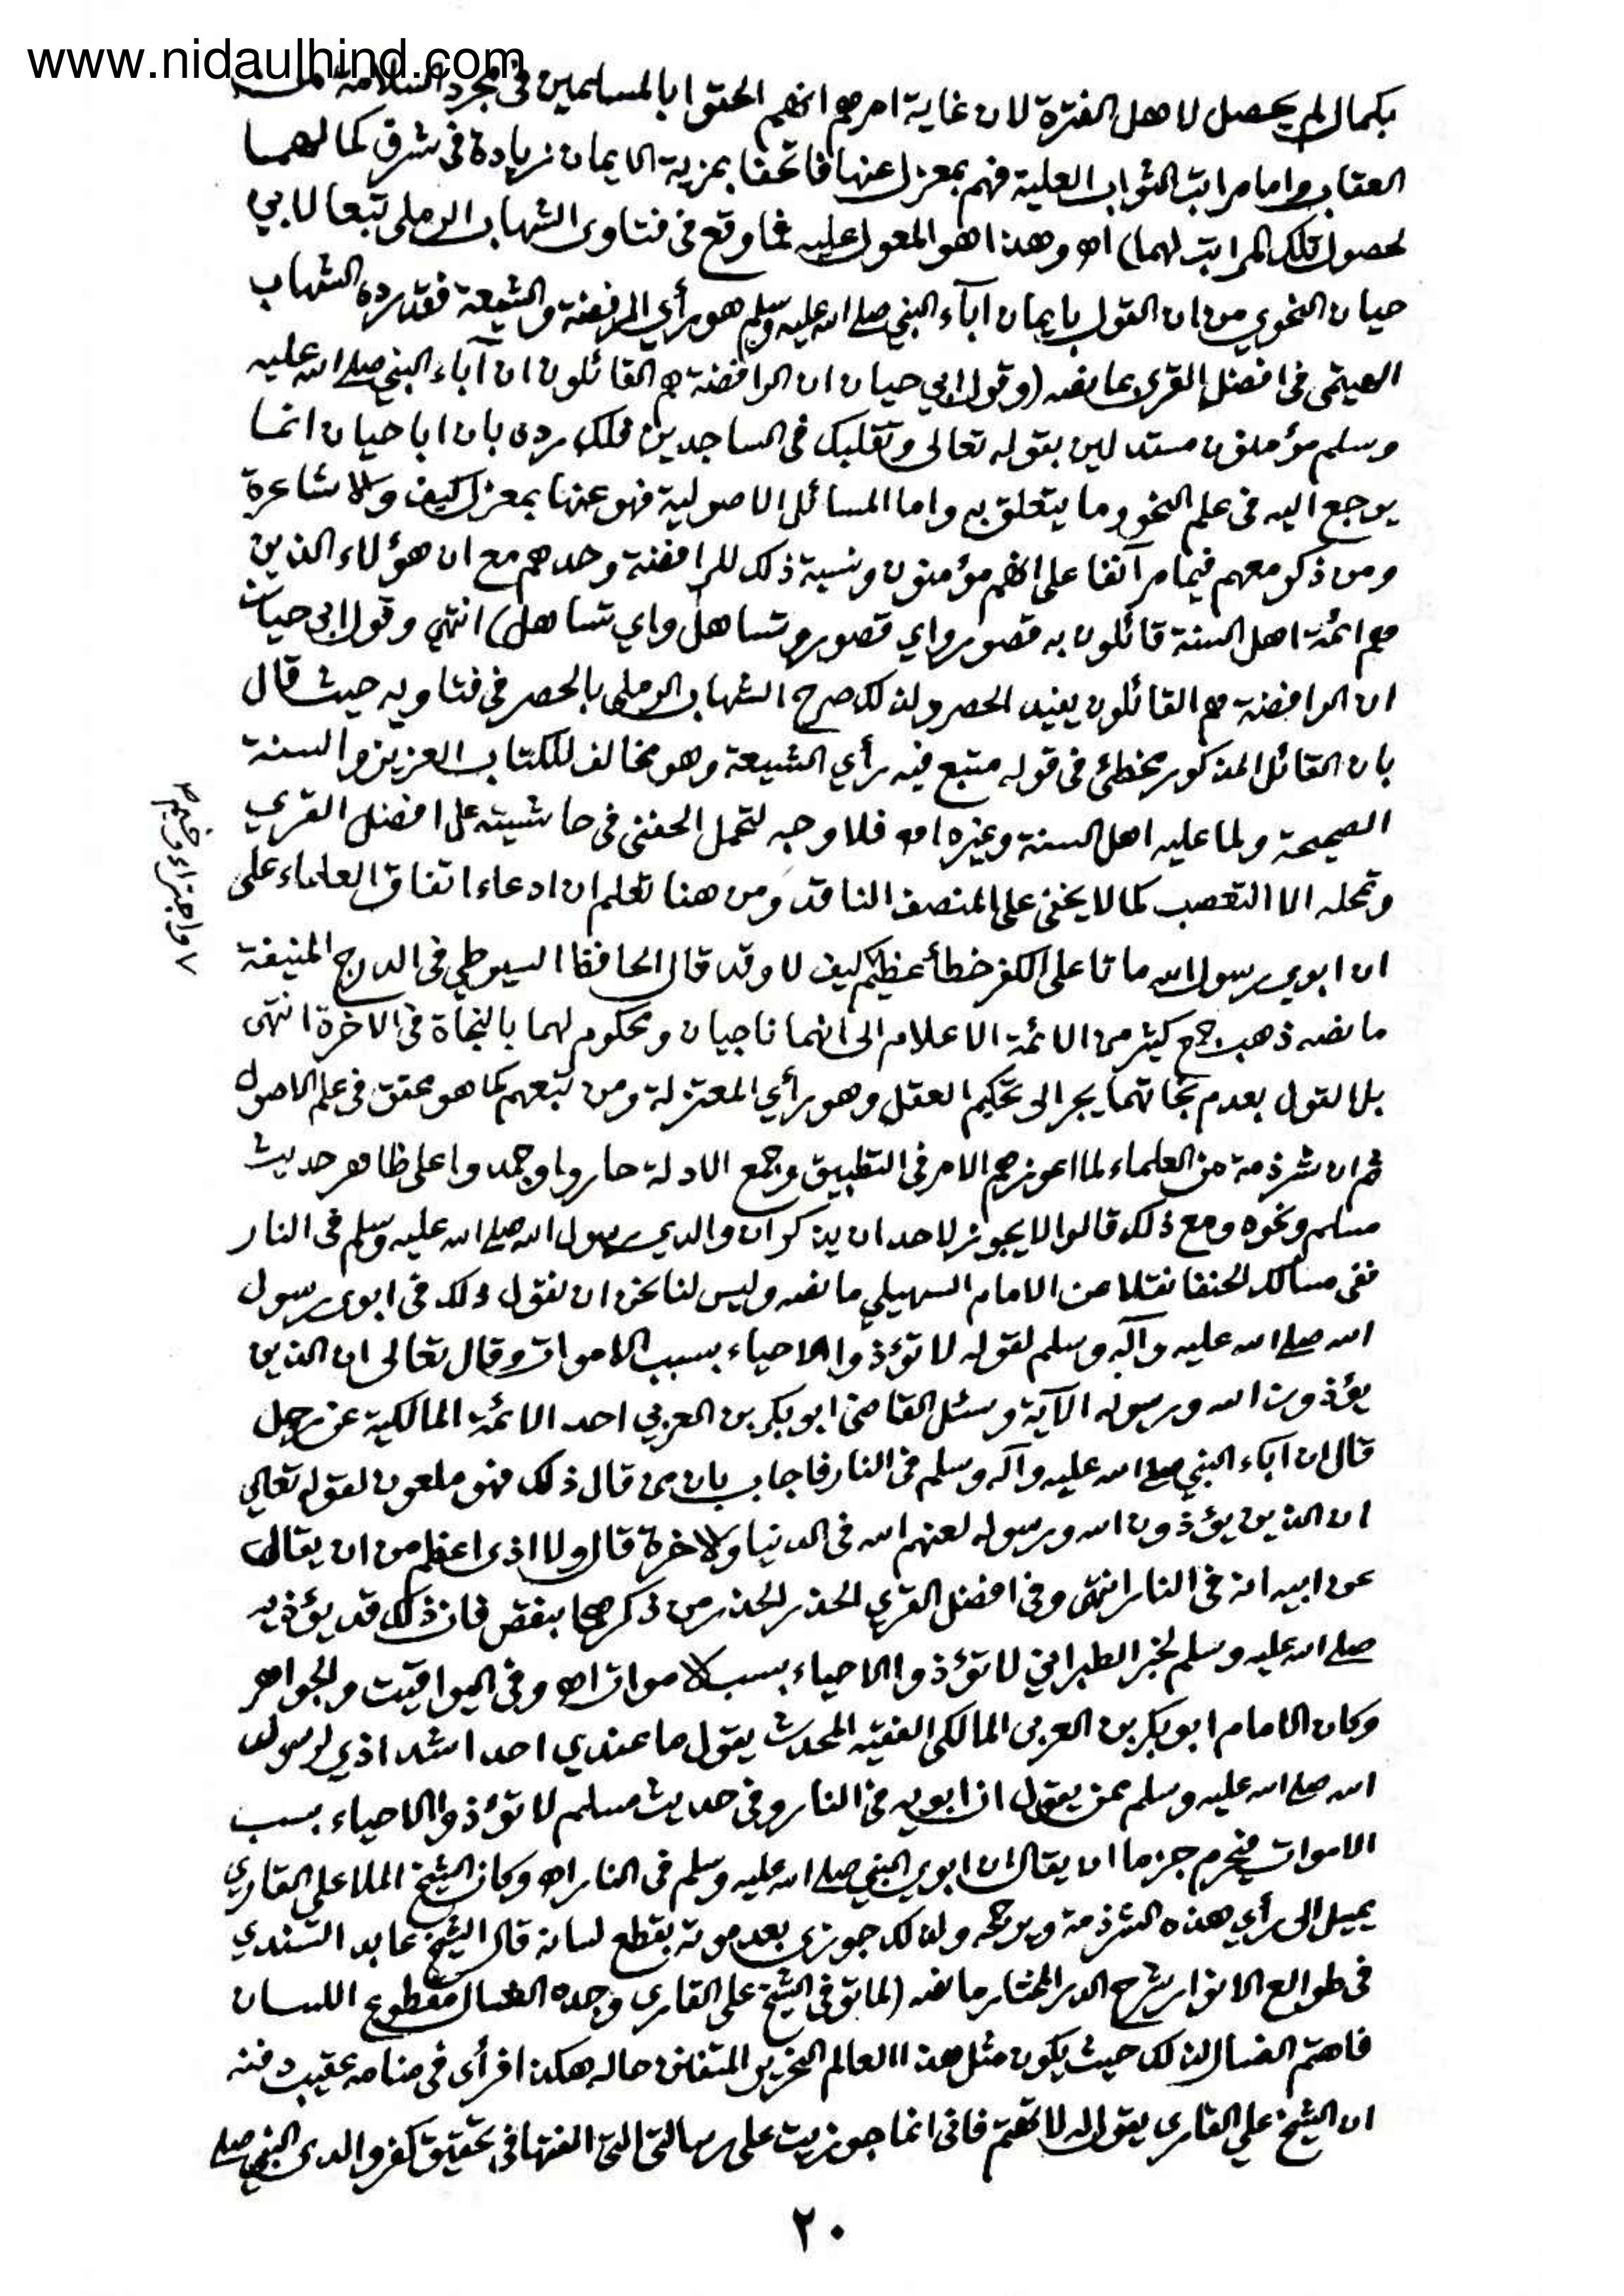 www.nidaulhind.com
بكمال لم يحصل لاهل الفترة لان غاية امرهم انهم الحقوا بالمسلمين في مجرد السلامة من
العقاب واما مراتب الثواب العلية فهم بمعزل عنها فاتحفا بمزية الايمان زيادة في شرف كمالهما
لحصول تلك المراتب لهما) اه وهذا هو المعول عليه فما وقع في فتاوى الشهاب الرملي تبعا لابي
حيان النحوي من ان القول بايمان آباء النبي صلى الله عليه وسلم هو رأي الرفضة والشيعة فقد رده الشهاب
الهيتمي في افضل القرى بما نصه (وقول ابي حيان ان الرافضة هم القائلون ان آباء النبي صلى الله عليه
وسلم مؤمنون مستدلين بقوله تعالى وتقلبك في الساجدين فلك رده بان ابا حيان انما
يرجع اليه في علم النحو وما يتعلق به واما المسائل الاصولية فهو عنها بمعزل كيف والاشاعرة
ومن ذكر معهم فيما مر آنفا على انهم مؤمنون ونسبة ذلك للرافضة وحدهم مع ان هؤلاء الذين
هم ائمة اهل السنة قائلون به قصور واي قصور وتساهل واي تساهل) انتهي وقول ابي حيان
ان الرافضة هم القائلون يفيد الحصر ولذلك صرح الشهاب الرملي بالحصر في فتاويه حيث قال
بان القائل المذكور مخطئ في قوله متبع فيه رأي الشيعة وهو مخالف للكتاب العزيز والسنة
الصحيحة ولما عليه اهل السنة وغيره اه فلا وجه لتحمل الحفني في حاشيته على افضل القري
وتمحله الا التعصب كما لا يخفى على المنصف الناقد ومن هنا تعلم ان ادعاء اتفاق العلماء على
ان ابوي رسول الله ماتا على الكفر خطأ عظيم كيف لا وقد قال الحافظ السيوطي في الدرج المنيفة
ما نصه ذهب جمع كثير من الائمة الاعلام الى انهما ناجيان ومحكوم لهما بالنجاة في الاخرة انتهى
بل القول بعدم نجاتهما يجر الى تحكيم العقل وهو رأي المعتزلة ومن تبعهم كما هو محقق في علم الاصول
ثم ان شرذمة من العلماء لما اعوزهم الامر في التطبيق وجمع الادلة حاروا وجمدوا على ظاهر حديث
مسلم ونحوه ومع ذلك قالوا لا يجوز لاحد ان يذكر ان والدي رسول الله صلى الله عليه وسلم في النار
ففي مسالك الحنفا نقلا عن الامام السهيلي ما نصه وليس لنا نحن ان نقول ذلك في ابوي رسول
الله صلى الله عليه وآله وسلم لقوله لا تؤذوا الاحياء بسبب الاموات وقال تعالى ان الذين
يؤذون الله ورسوله الآية وسئل القاضي ابو بكر بن العربي احد الائمة المالكية عن رجل
قال ان آباء النبي صلى الله عليه وآله وسلم في النار فاجاب بان من قال ذلك فهو ملعون لقوله تعالي
ان الذين يؤذون الله ورسوله لعنهم الله في الدنيا والاخرة قال ولا اذى اعظم من ان يقال
عن ابيه انه في النار انتهى وفي افضل القري الحذر الحذر من ذكرهما بنقص فان ذلك قد يؤذيه
صلى الله عليه وسلم لخبر الطبراني لا تؤذوا الاحياء بسب الاموات اه وفي اليواقيت والجواهر
وكان الامام ابو بكر بن العربي المالكي الفقيه المحدث يقول ما عندي احد اشد اذي لرسول
الله صلى الله عليه وسلم ممن يقول ان ابويه في النار وفي حديث مسلم لا تؤذوا الاحياء بسب
الاموات فيحرم جزما ان يقال ان ابوي النبي صلى الله عليه وسلم في النار اه وكان الشيخ الملا علي القاري
يميل الى رأي هذه الشرذمة ويرجحه ولذلك جوزي بعد موته بقطع لسانه قال الشيخ عابد السندي
في طوالع الانوار شرح الدر المختار ما نصه (لما توفي الشيخ علي القاري وجده الغسال مقطوع اللسان
فاهتم الغسال لذلك حيث يكون مثل هذا العالم النحرير المتفنن حاله هكذا فرأى في منامه عقيب دفنه
ان الشيخ علي القاري يقول له لا تهتم فاني انما جوزيت على رسالتي التي الفتها في تحقيق كفر والدي النبي صلى
٢٠